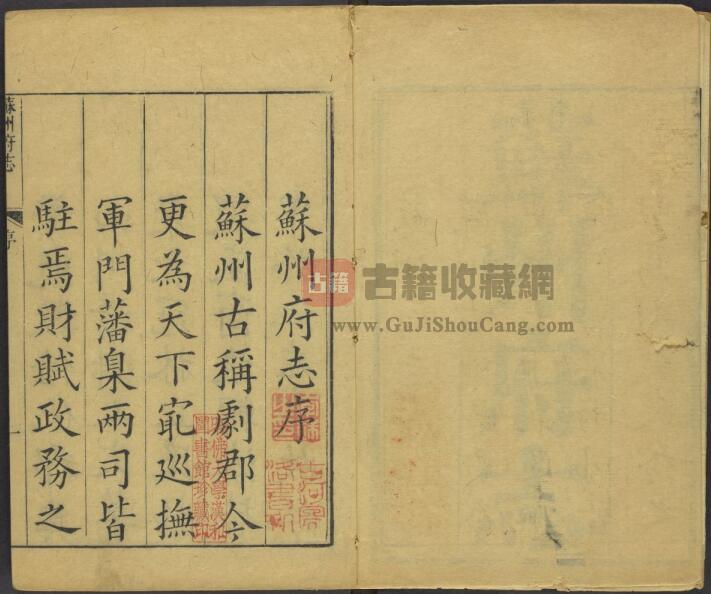 蘇州府志序
蘇州古稱劇郡今
更為天下冣巡撫
軍門藩臬兩司皆
駐焉財賦政務之
蘇州府志
序
一
古籍
古籍收藏網
www.GuJiShouCang.com